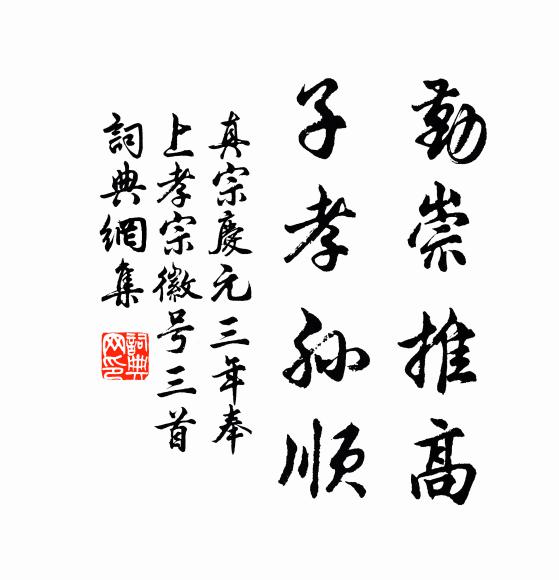 勤崇推高
子孝孙順
真宗慶元三年奉
上孝宗徽号三首
詞典網集
詞典网印